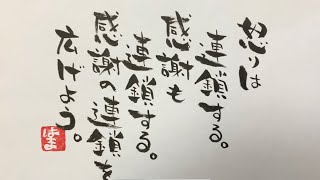 怒りは
連鎖する。
感謝も
連鎖する。
感謝の連鎖を
広げよう。